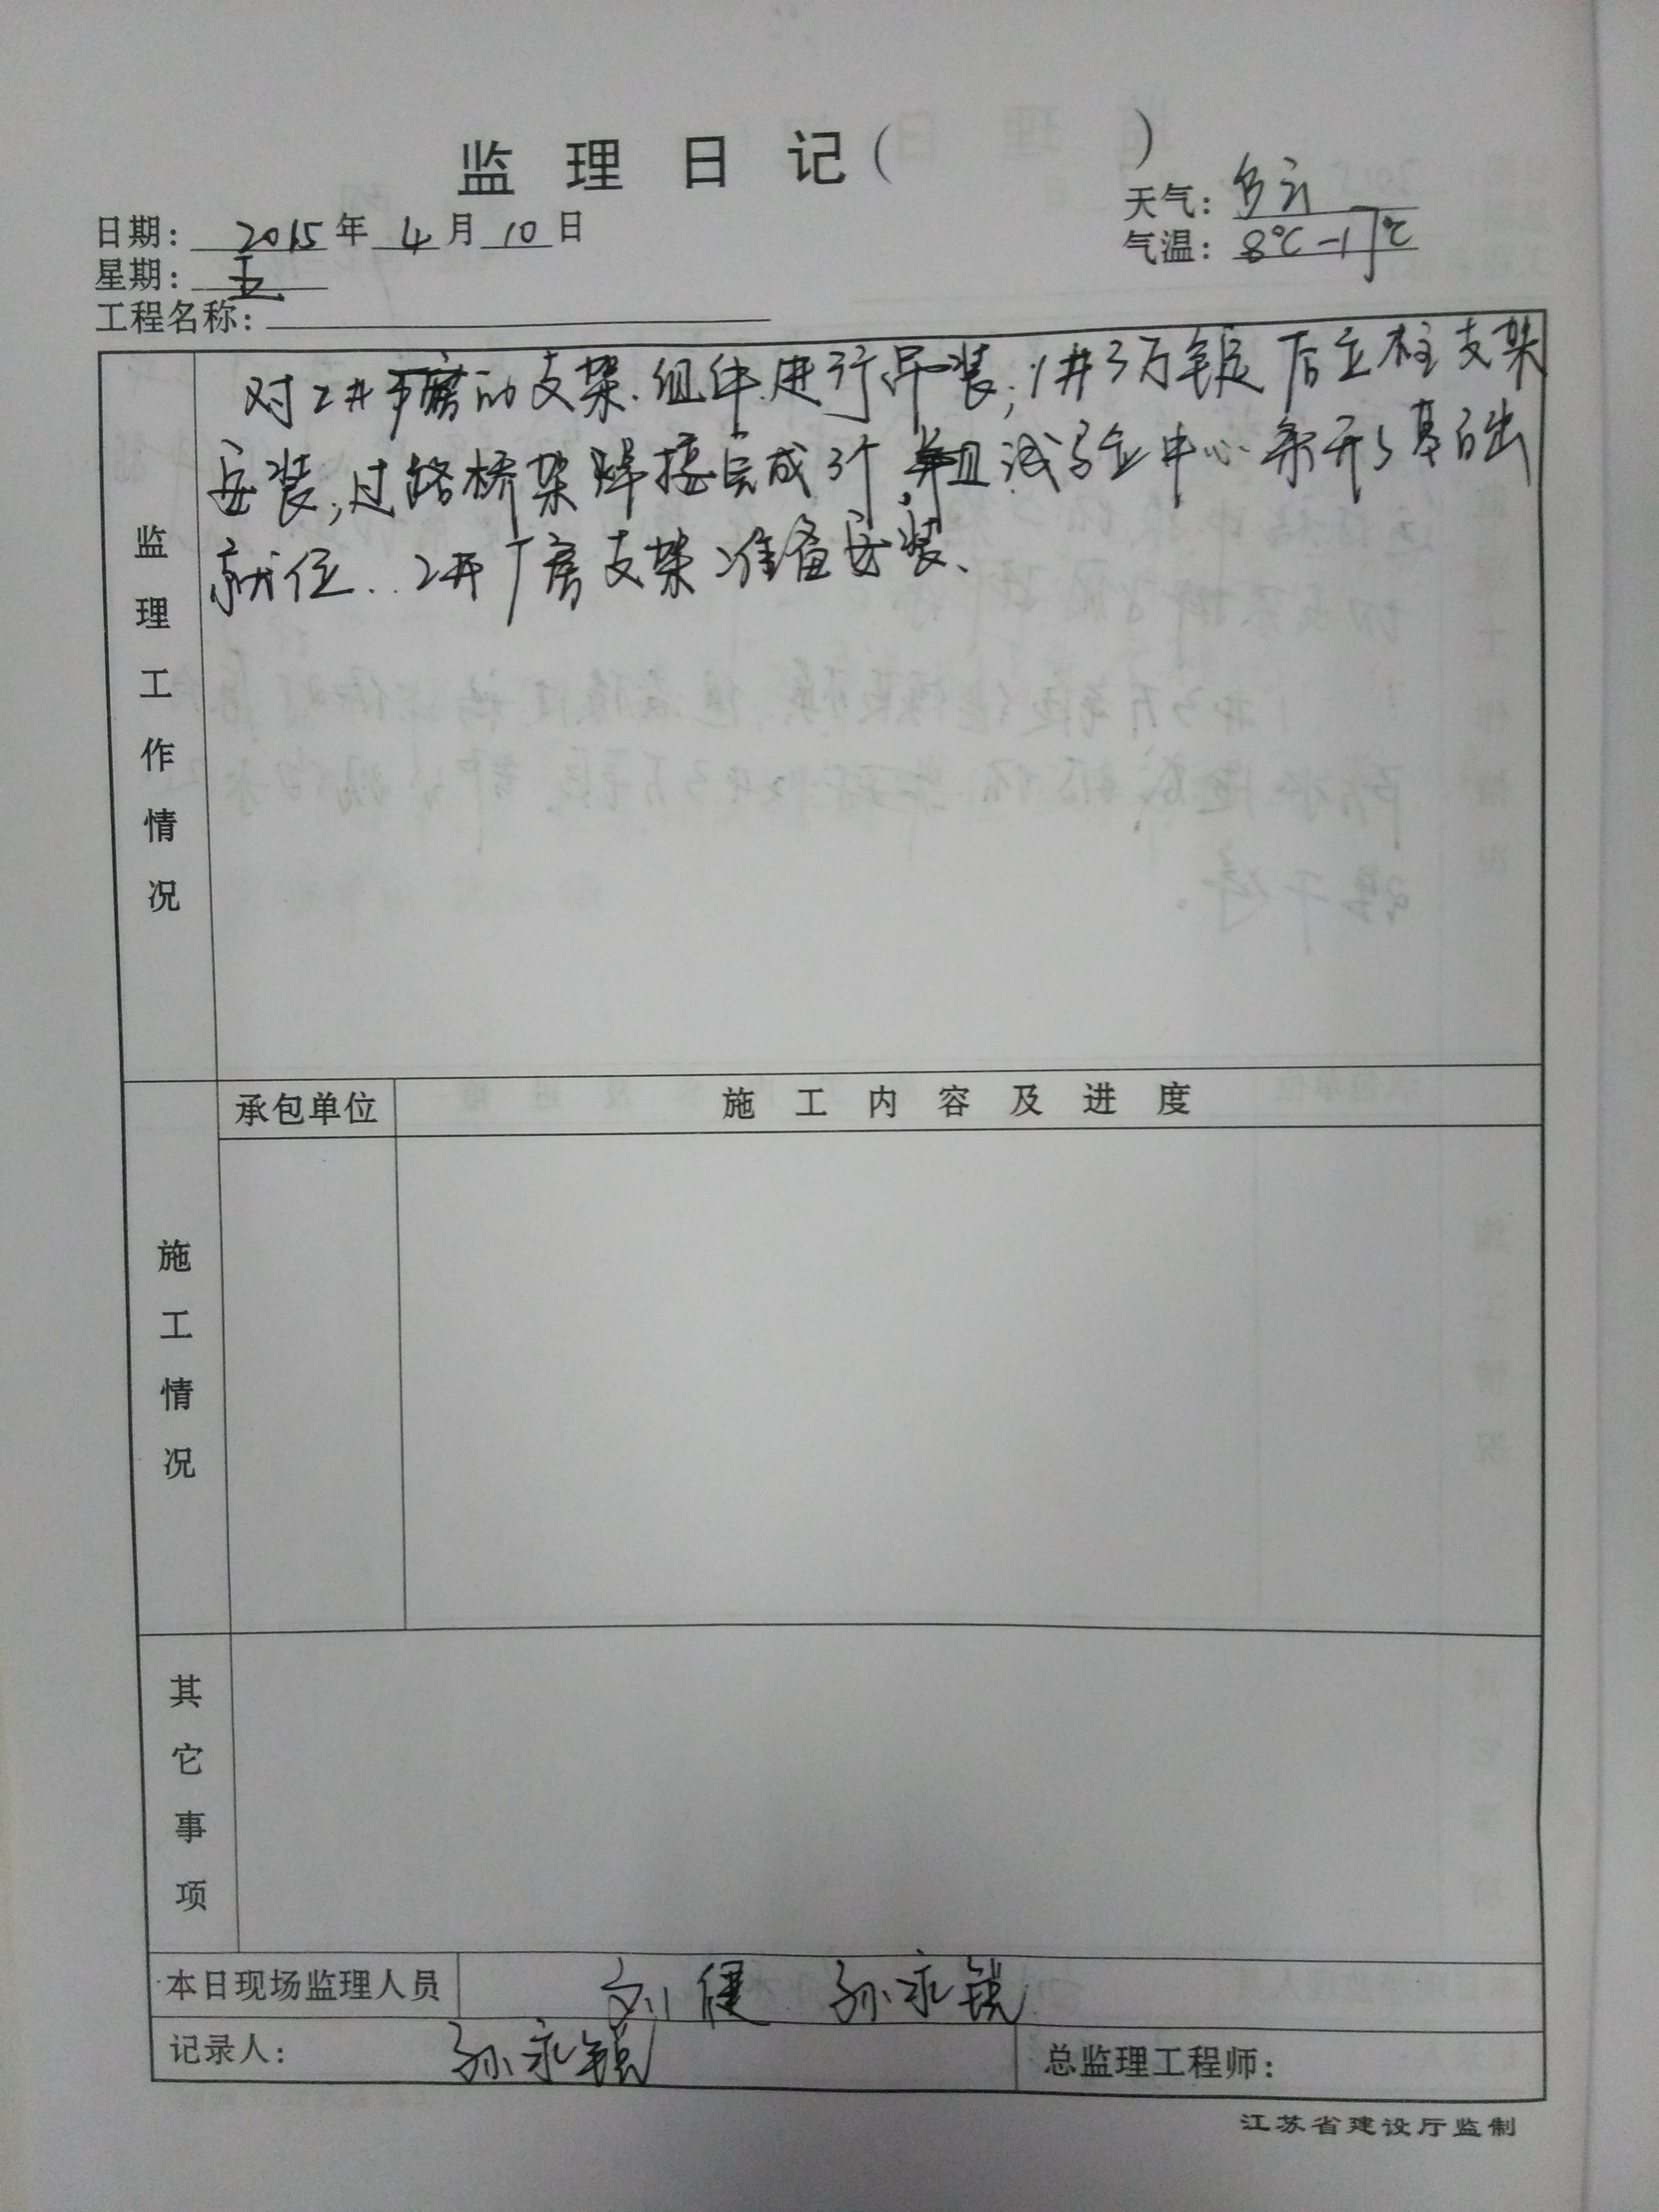 监理日记( )
日期: 2015 年 4 月 10 日
天气: 多云
星期: 五
气温: 8℃-17℃
工程名称:
监理工作情况
对2#厂房的支架.组件.进行吊装;1#3万锭后立柱支架
安装;过路桥架焊接完成3个,并且试验中心 基础
就位..2#厂房支架准备安装、
承包单位
施工内容及进度
施工情况
其它事项
本日现场监理人员 刘健 孙永锐
记录人: 孙永锐
总监理工程师:
江苏省建设厅监制